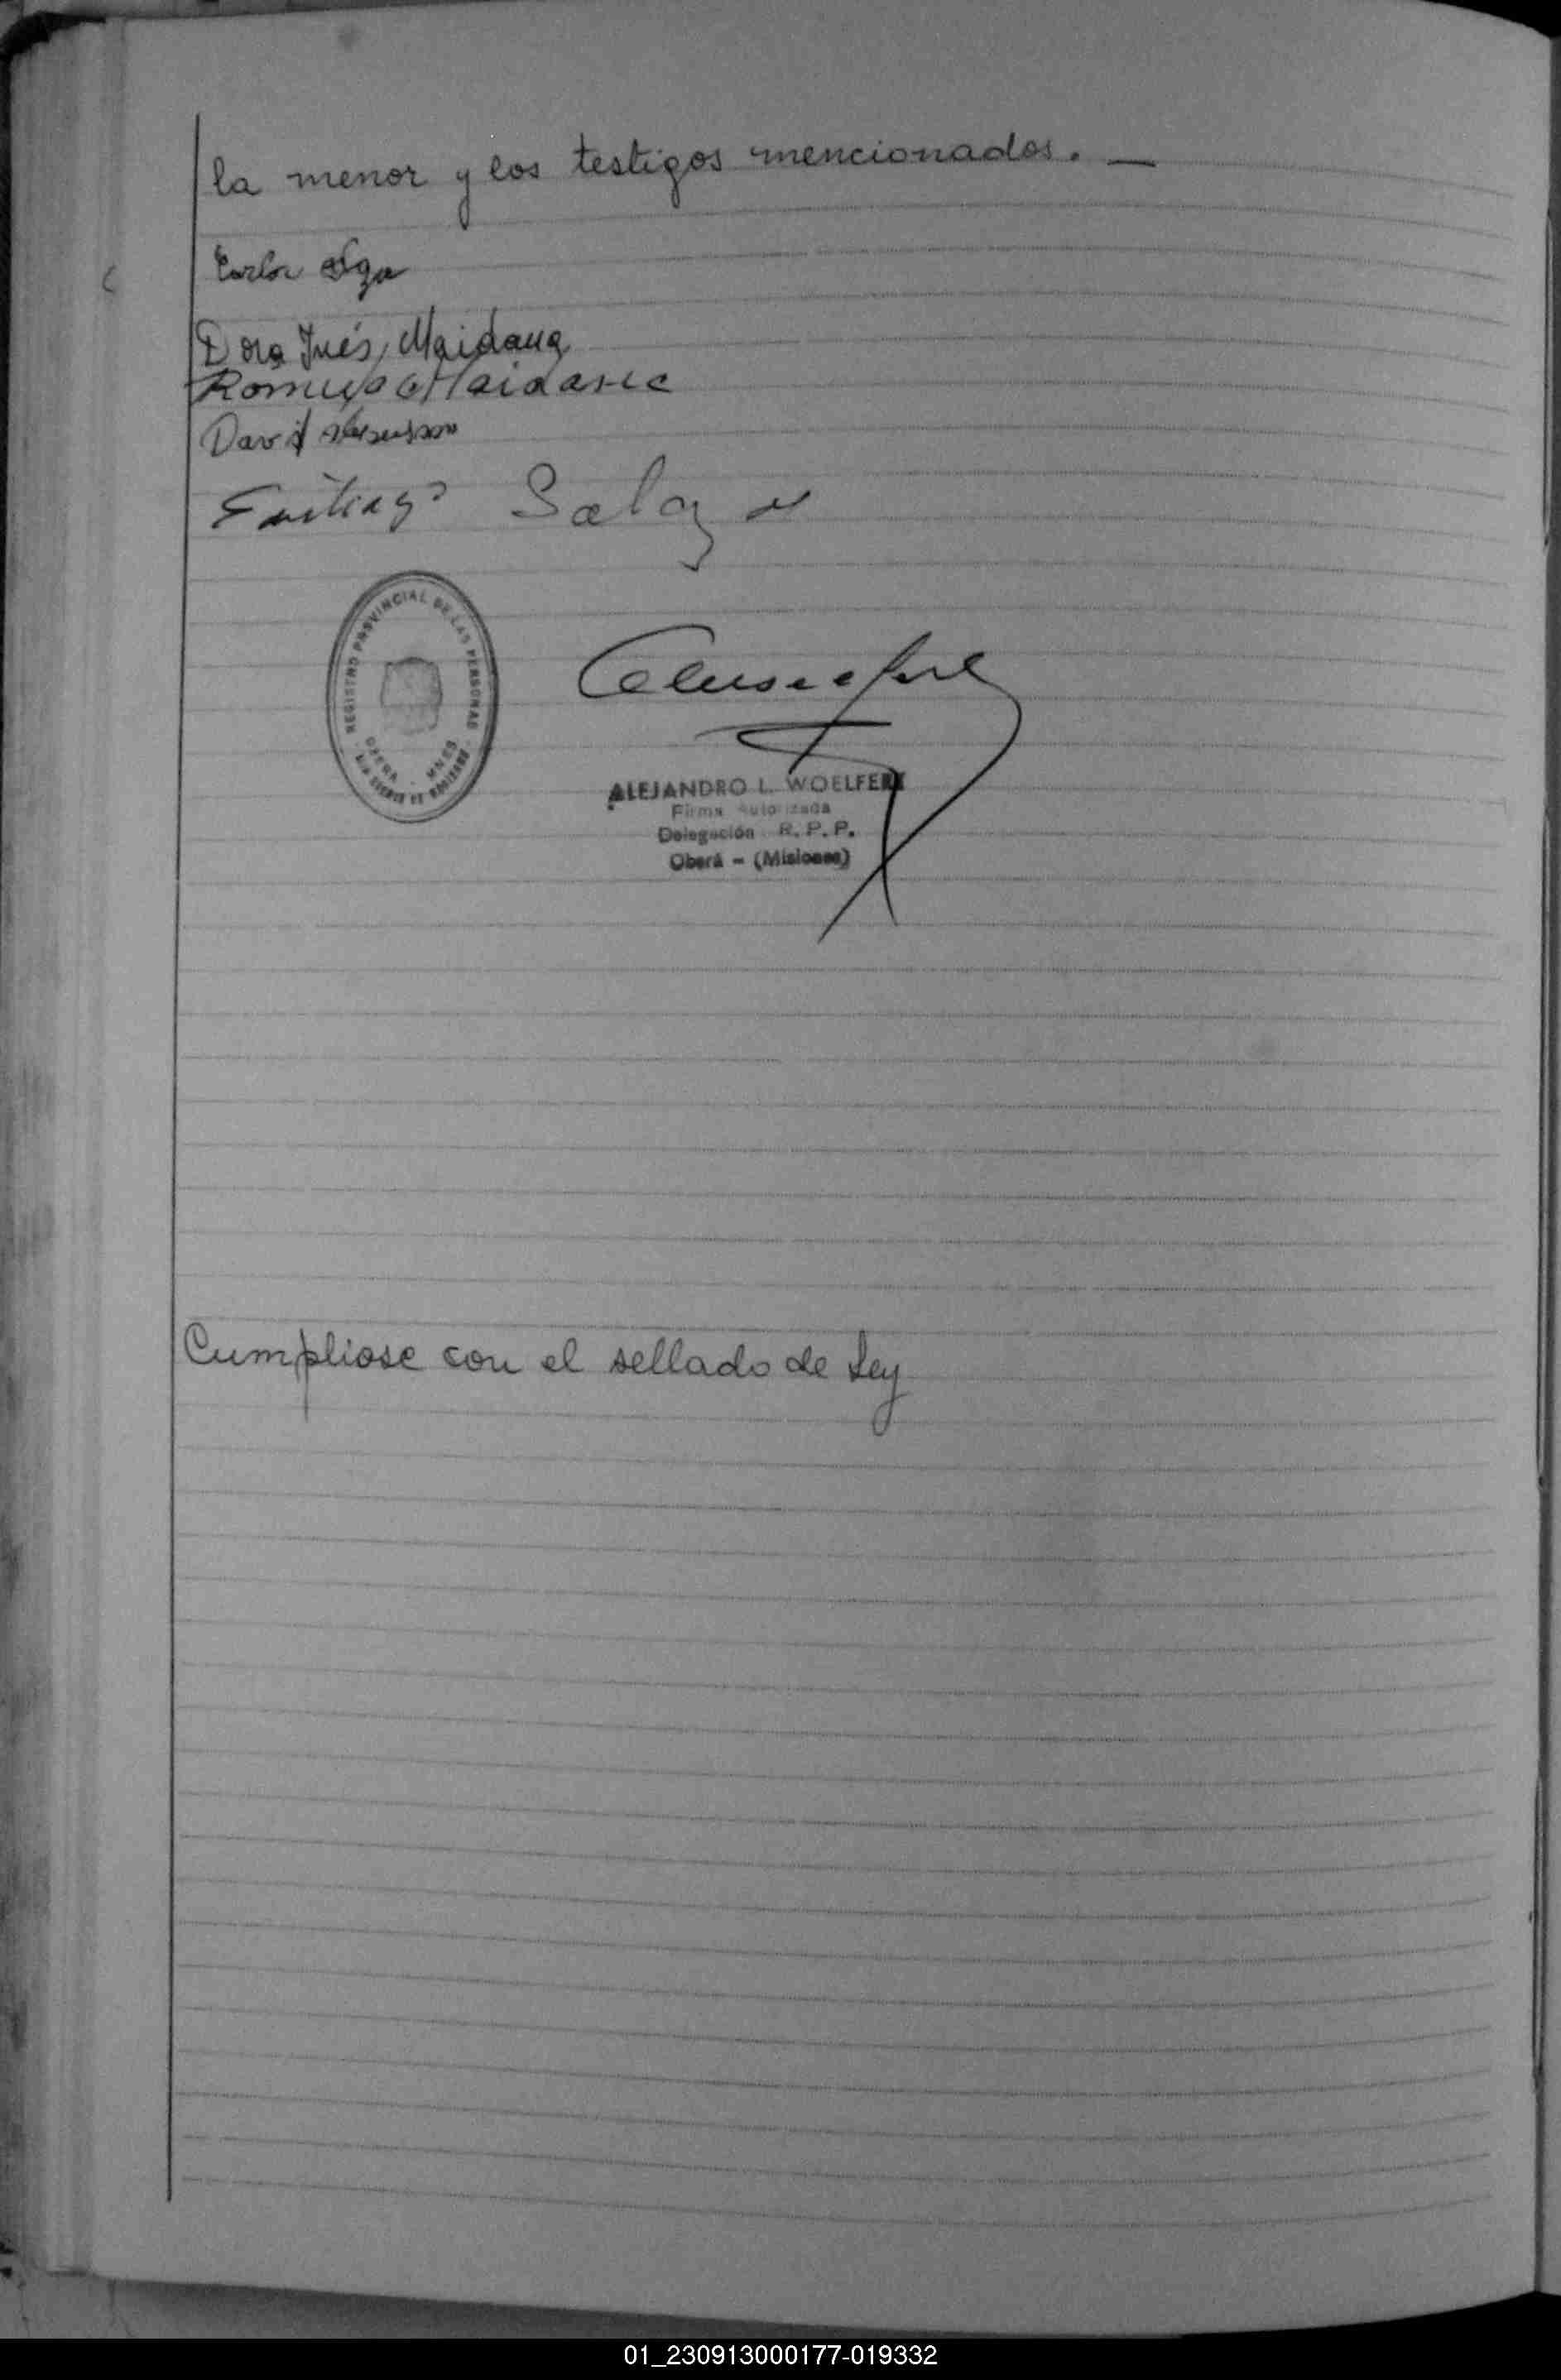 la menor y los testigos mencionados. —
Carlos
Dora Inés Maidana
Maidana
David
Salazar
REGISTRO PROVINCIAL DE LAS PERSONAS
OBERA - MNES
ALEJANDRO L. WOELFERT
Firma Autorizada
Delegación R. P. P.
Oberá - (Misiones)
Cumpliose con el sellado de Ley
01_230913000177-019332